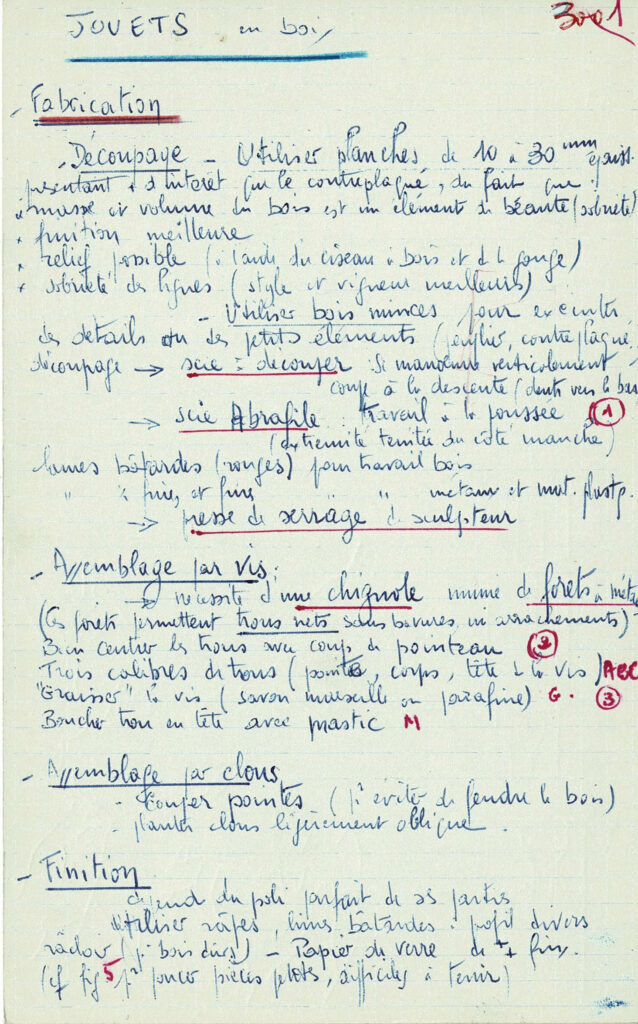 3001
JOUETS en bois
- Fabrication
- Découpage - Utiliser planches de 10 à 30 mm épaiss.
présentant + d'intérêt que le contreplaqué, du fait que :
* masse et volume du bois est un élément de béauté (sobriété)
* finition meilleure
* relief possible (à l'aide du ciseau à bois et de la gouge)
* sobriété des lignes (style et vigueur meilleurs)
- Utiliser bois minces pour exécuter
des détails ou des petits éléments (peuplier, contreplaqué
découpage → scie à découper Se manœuvre verticalement
coupe à la descente (dents vers le bas
→ scie Abrafile : travail à la poussée ①
(extrémité teintée du côté manche)
lames bâtardes (rouges) pour travail bois
" " fines, et fines " " métaux et mat. plastq.
→ presse de serrage de sculpteur
- Assemblage par vis :
→ nécessite d'une chignole munie de forets à métaux
(Ces forets permettent trous nets sans bavures, ni arrachements) -
Bien centrer les trous avec coup de pointeau ②
Trois calibres de trous (pointe, corps, tête de la vis) ABC
"Graisser" la vis (savon marseille ou parafine) G. ③
Boucher trou en tête avec mastic M
- Assemblage par clous
- Couper pointes (pr éviter de fendre le bois)
- planter clous légèrement oblique.
- Finition
dépend du poli parfait de ses parties
Utiliser râpes, limes bâtardes : profil divers
râcloir (pr bois durs) - Papier de verre de + + fin.
(cf fig 5 pr poncer pièces plates, difficiles à tenir)